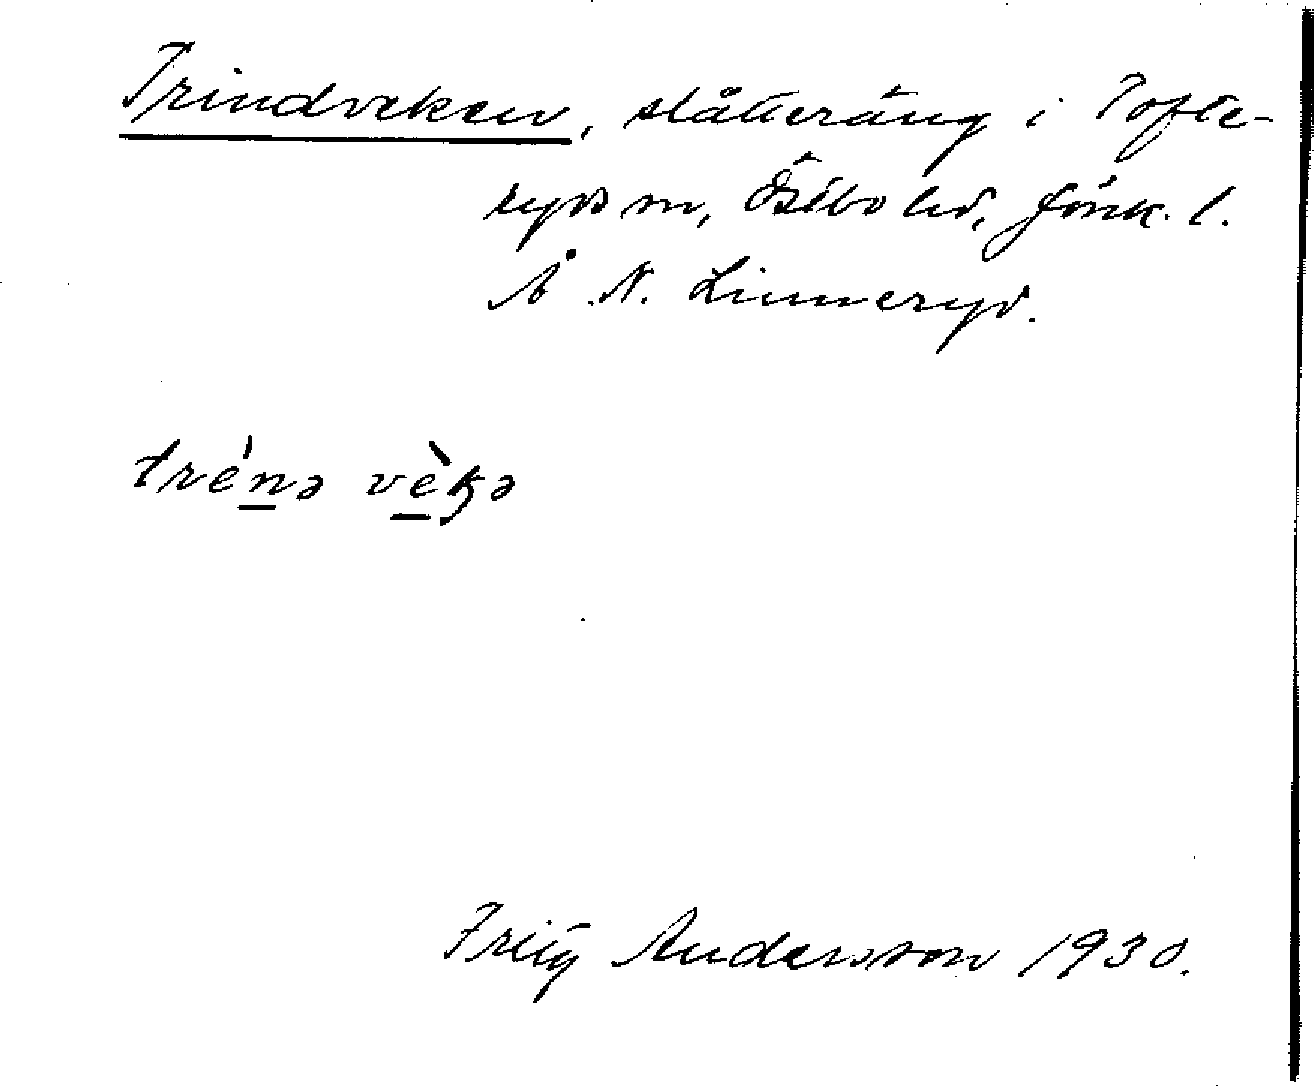 Trindveken, slåtteräng i Tofte-
ryds sn, Östbo hd, Jönk. l.
Å N. Linneryd.
tré̱nə vè̱kə
Fritz Andersson 1930.